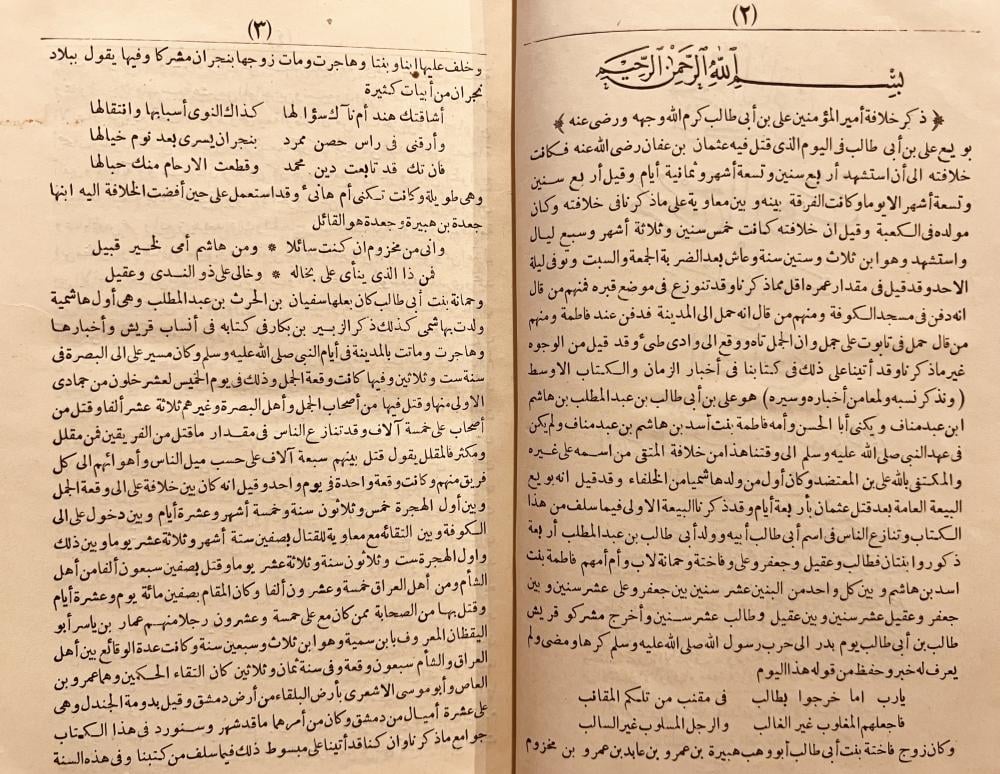 (٢)
بسم الله الرحمن الرحيم
﴿ ذكر خلافة أمير المؤمنين على بن أبى طالب كرم الله وجهه ورضى عنه ﴾
بويع على بن أبى طالب فى اليوم الذى قتل فيه عثمان بن عفان رضى الله عنه فكانت
خلافته الى أن استشهد أربع سنين وتسعة أشهر وثمانية أيام وقيل أربع سنين
وتسعة أشهر الا يوما وكانت الفرقة بينه وبين معاوية على ما ذكرنا فى خلافته وكان
مولده فى الكعبة وقيل ان خلافته كانت خمس سنين وثلاثة أشهر وسبع ليال
واستشهد وهو ابن ثلاث وستين سنة وعاش بعد الضربة الجمعة والسبت وتوفى ليلة
الاحد وقد قيل فى مقدار عمره اقل مما ذكرنا وقد تنوزع فى موضع قبره فمنهم من قال
انه دفن فى مسجد الكوفة ومنهم من قال انه حمل الى المدينة فدفن عند فاطمة ومنهم
من قال حمل فى تابوت على جمل وان الجمل تاه ووقع الى وادى طئ وقد قيل من الوجوه
غير ما ذكرنا وقد أتينا على ذلك فى كتابنا فى أخبار الزمان والكتاب الاوسط
(ونذكر نسبه ولمعا من أخباره وسيره) هو على بن أبى طالب بن عبد المطلب بن هاشم
ابن عبد مناف ويكنى أبا الحسن وأمه فاطمة بنت أسد بن هاشم بن عبد مناف ولم يكن
فى عهد النبى صلى الله عليه وسلم الى وقتنا هذا من خلافة المتقى من اسمه على غيره
والمكتفى بالله على بن المعتضد وكان أول من ولد ها شميا من الخلفاء وقد قيل انه بويع
البيعة العامة بعد قتل عثمان بأربعة أيام وقد ذكرنا البيعة الاولى فيما سلف من هذا
الكتاب وتنازع الناس فى اسم أبى طالب أبيه وولد أبى طالب بن عبد المطلب أربعة
ذكور وابنتان فطالب وعقيل وجعفر وعلى وفاختة وجمانة لاب وأم أمهم فاطمة بنت
اسد بن هاشم وبين كل واحد من البنين عشر سنين بين جعفر وعلى عشر سنين وبين
جعفر وعقيل عشر سنين وبين عقيل وطالب عشر سنين وأخرج مشركو قريش
طالب بن أبى طالب يوم بدر الى حرب رسول الله صلى الله عليه وسلم كرها ومضى ولم
يعرف له خبر وحفظ من قوله هذا اليوم
يارب اما خرجوا بطالب فى مقنب من تلكم المقانب
فاجعلهم المغلوب غير الغالب والرجل المسلوب غير السالب
وكان زوج فاختة بنت أبى طالب أبو وهب هبيرة بن عمرو بن عابد بن عمرو بن مخزوم
(٣)
وخلف عليها ابنا وبنتا وهاجرت ومات زوجها بنجران مشركا وفيها يقول ببلاد
نجران من أبيات كثيرة
أشاقتك هند أم نآك سؤالها كذاك النوى أسبابها وانتقالها
وأرقنى فى راس حصن ممرد بنجران يسرى بعد نوم خيالها
فان تك قد تابعت دين محمد وقطعت الارحام منك حبالها
وهى طويلة وكانت تكنى أم هانئ وقد استعمل على حين أفضت الخلافة اليه ابنها
جعدة بن هبيرة وجعدة هو القائل
وانى من مخزوم ان كنت سائلا * ومن هاشم أمى لخير قبيل
فمن ذا الذى ينأى على بخاله * وخالى على ذو الندى وعقيل
وجمانة بنت أبى طالب كان بعلها سفيان بن الحرث بن عبد المطلب وهى أول هاشمية
ولدت بها شمى كذلك ذكر الزبير بن بكار فى كتابه فى أنساب قريش وأخبارها
وهاجرت وماتت بالمدينة فى أيام النبى صلى الله عليه وسلم وكان مسير على الى البصرة فى
سنة ست وثلاثين وفيها كانت وقعة الجمل وذلك فى يوم الخميس لعشر خلون من جمادى
الاولى منها وقتل فيها من أصحاب الجمل وأهل البصرة وغيرهم ثلاثة عشر ألفا وقتل من
أصحاب على خمسة آلاف وقد تنازع الناس فى مقدار ما قتل من الفريقين فمن مقلل
ومكثر فالمقلل يقول قتل بينهم سبعة آلاف على حسب ميل الناس وأهوائهم الى كل
فريق منهم وكانت وقعة واحدة فى يوم واحد وقيل انه كان بين خلافة على الى وقعة الجمل
وبين أول الهجرة خمس وثلاثون سنة وخمسة أشهر وعشرة أيام وبين دخول على الى
الكوفة وبين التقائه مع معاوية للقتال بصفين ستة أشهر وثلاثة عشر يوما وبين ذلك
واول الهجرة ست وثلاثون سنة وثلاثة عشر يوما وقتل بصفين سبعون ألفا من أهل
الشأم ومن أهل العراق خمسة وعشرون ألفا وكان المقام بصفين مائة يوم وعشرة أيام
وقتل بها من الصحابة ممن كان مع على خمسة وعشرون رجلا منهم عمار بن ياسر أبو
اليقظان المعروف بابن سمية وهو ابن ثلاث وسبعين سنة وكانت عدة الوقائع بين أهل
العراق والشأم سبعون وقعة وفى سنة ثمان وثلاثين كان التقاء الحكمين وهما عمرو بن
العاص وأبو موسى الاشعرى بأرض البلقاء من أرض دمشق وقيل بدومة الجندل وهى
على عشرة أميال من دمشق وكان من أمرهما ما قد شهر وسنورد فى هذا الكتاب
جوامع ما ذكرنا وان كنا قد أتينا على مبسوط ذلك فيما سلف من كتبنا وفى هذه السنة